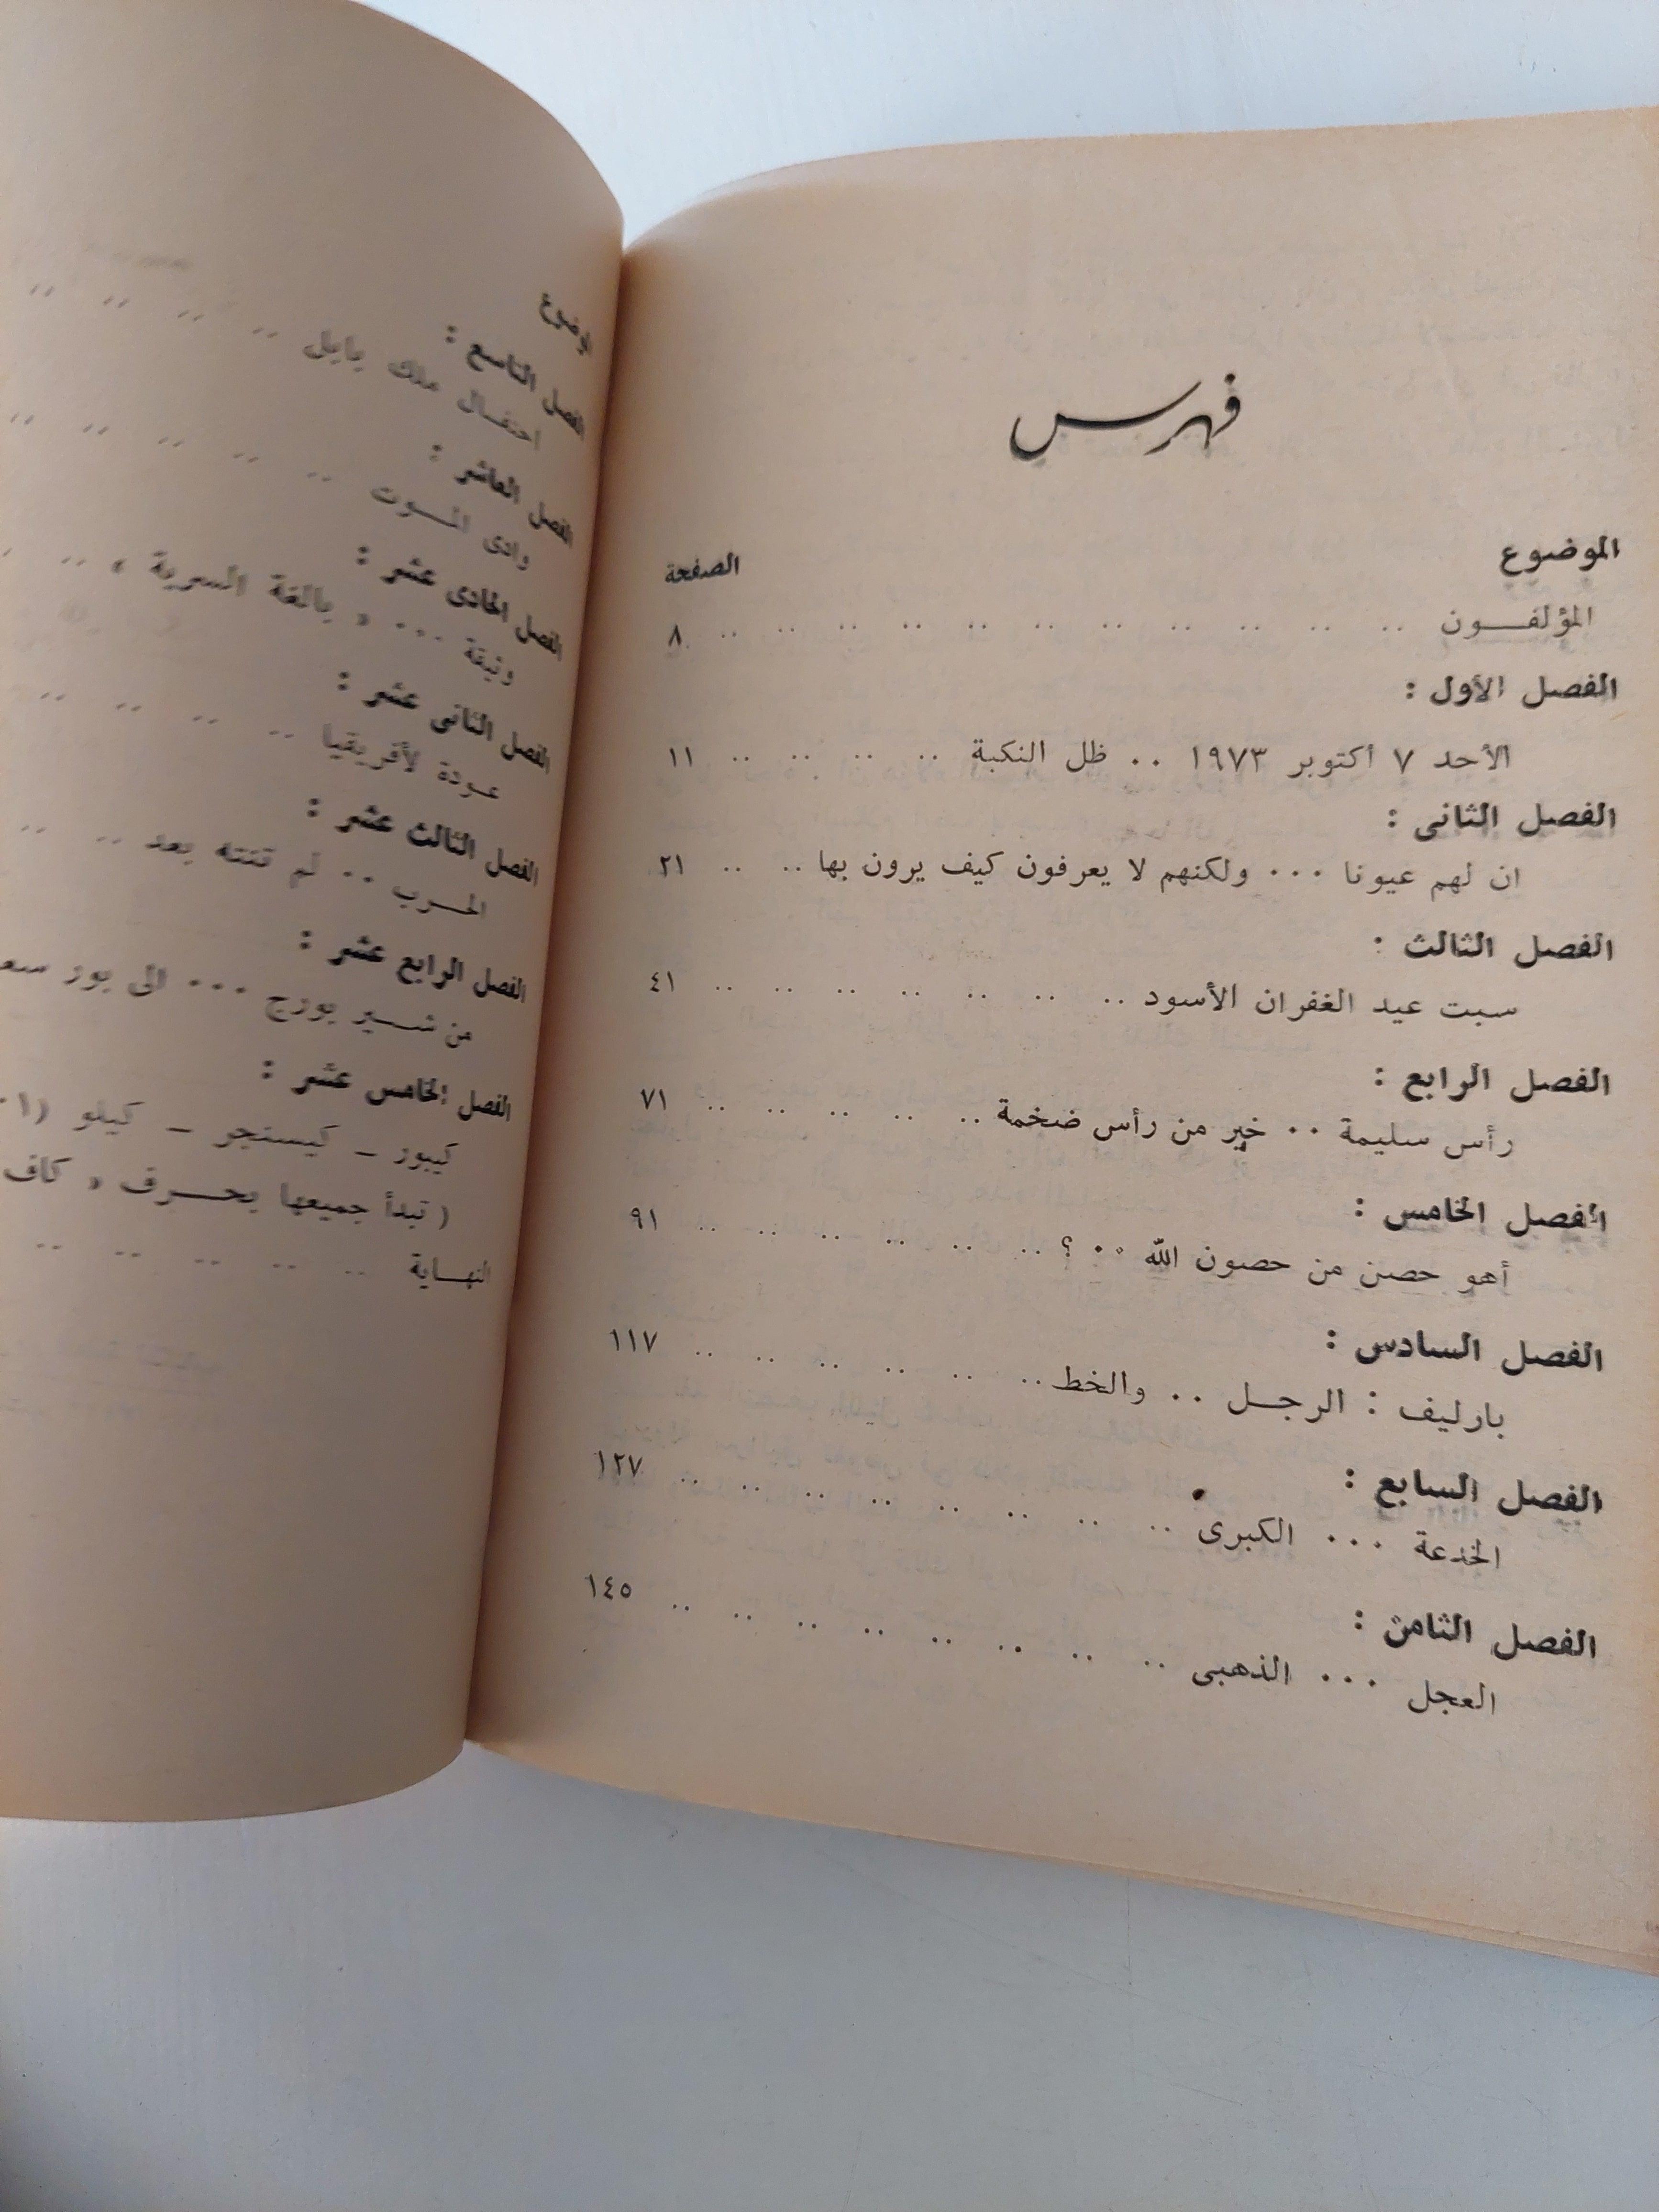 فهرس
الموضوع الصفحة
المؤلفــون .. .. .. .. .. .. .. .. .. .. .. ٨
الفصل الأول :
الأحد ٧ أكتوبر ١٩٧٣ .. ظل النكبة .. .. .. .. ١١
الفصل الثانى :
ان لهم عيونا ... ولكنهم لا يعرفون كيف يرون بها .. .. ٢١
الفصل الثالث :
سبت عيد الغفران الأسود .. .. .. .. .. .. .. ٤١
الفصل الرابع :
رأس سليمة .. خير من رأس ضخمة .. .. .. .. .. ٧١
الفصل الخامس :
أهو حصن من حصون الله .. ؟ .. .. .. .. .. .. ٩١
الفصل السادس :
بارليف : الرجــل .. والخط .. .. .. .. .. .. ١١٧
الفصل السابع :
الخدعة ... الكبرى .. .. .. .. .. .. .. .. ١٢٧
الفصل الثامن :
العجل ... الذهبى .. .. .. .. .. .. .. .. ١٤٥
الفصل التاسع :
احتفــال ملك بابل .. .. .. .. ..
الفصل العاشر :
وادى المــوت .. .. .. .. .. ..
الفصل الحادى عشر :
وثيقة ... « بالغة السرية » .. ..
الفصل الثانى عشر :
عـودة لأفريقيا .. .. .. .. ..
الفصل الثالث عشر :
الحــرب .. لم تنته بعد .. ..
الفصل الرابع عشر :
من شــير بورج ... الى بور
الفصل الخامس عشر :
كيبور – كيسنجر – كيلو
( تبدأ جميعها بحــرف « كاف
النهــاية .. .. .. .. ..